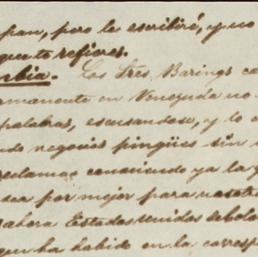 pan, pero le escribiré, y no
que te refieres.
rbia. Los Sres. Barings co
amanente en Venezuela no
palabras, escusandose, y lo
ndo negocios pingües sin
reclamas conociendo ya la
sea por mejor para nosotro
ahora Estados Unidos debola
que ha habido en la corresp